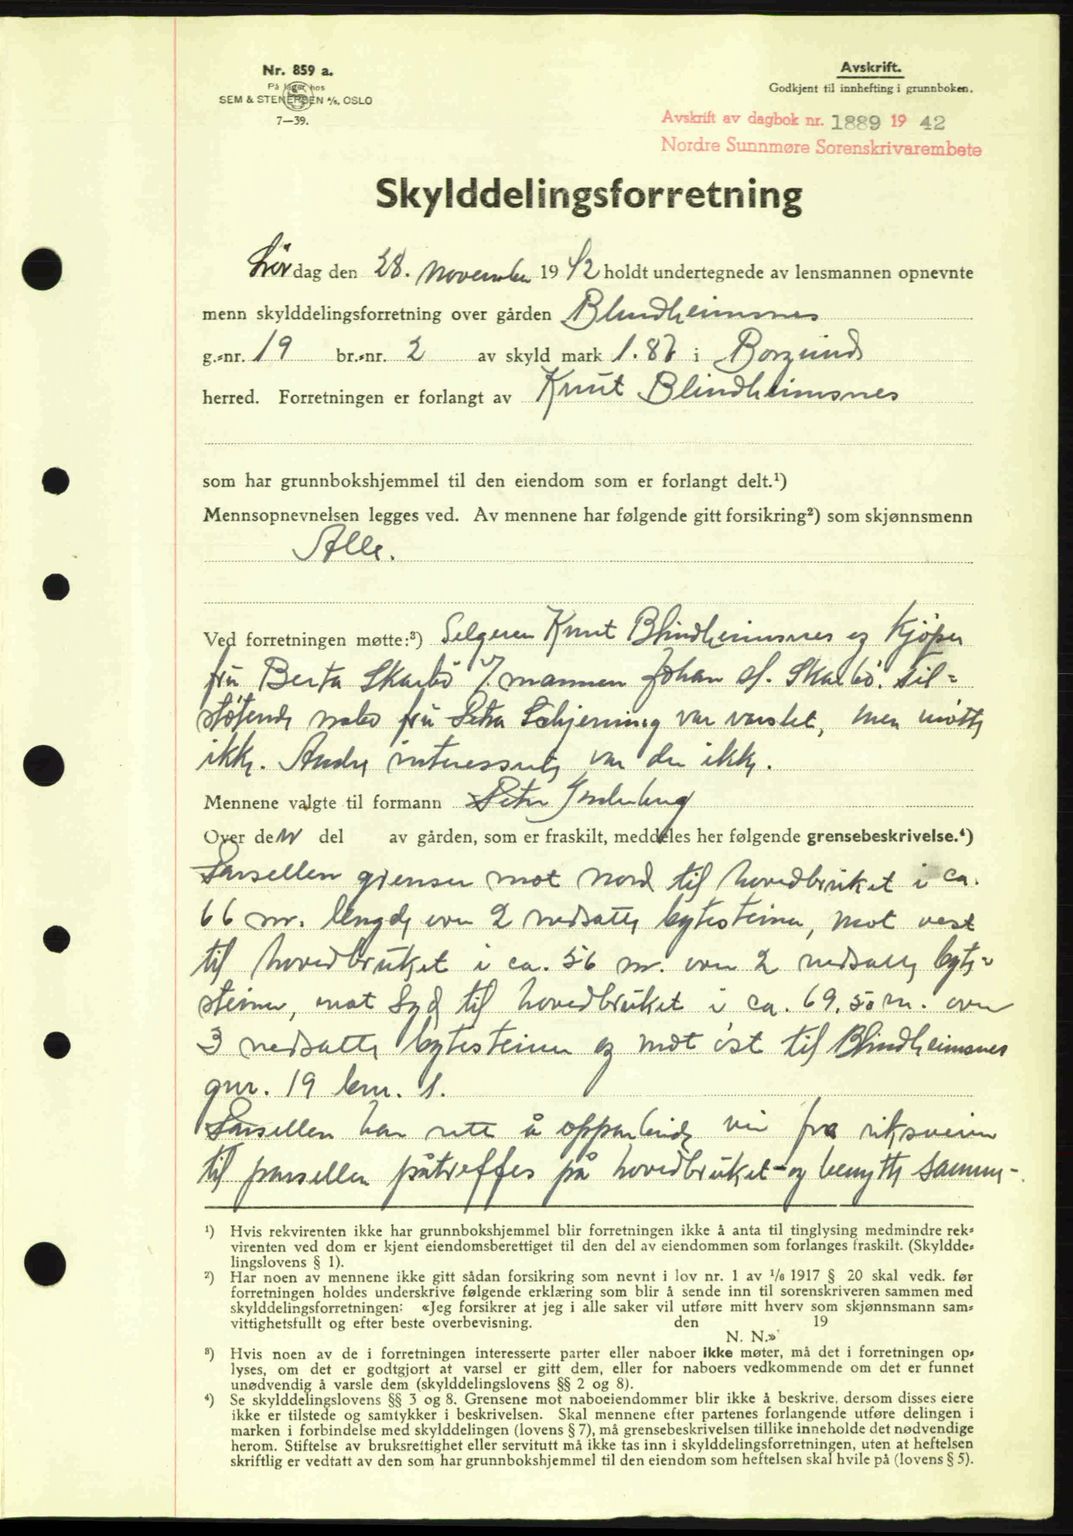 Nr. 859 a.
På lager hos
SEM & STENERSEN A/S, OSLO
7—39.
Avskrift.
Godkjent til innhefting i grunnboken.
Avskrift av dagbok nr. 1889 19 42
Nordre Sunnmøre Sorenskrivarembete
Skylddelingsforretning
Lørdag den 28. november 1942 holdt undertegnede av lensmannen opnevnte
menn skylddelingsforretning over gården Blindheimsnes
g.-nr. 19 br.-nr. 2 av skyld mark 1.87 i Borgund
herred. Forretningen er forlangt av Knut Blindheimsnes
som har grunnbokshjemmel til den eiendom som er forlangt delt.¹)
Mennsopnevnelsen legges ved. Av mennene har følgende gitt forsikring²) som skjønnsmenn
Alle.
Ved forretningen møtte:³) Selgeren Knut Blindheimsnes og kjøper
fru Berta Skarbö v/ mannen Johan Skarbö. Til-
støtende nabo fru Petra Schjerning var varslet, men møtte
ikke. Andre interesserte var der ikke.
Mennene valgte til formann Peter
Over den del av gården, som er fraskilt, meddeles her følgende grensebeskrivelse.⁴)
Parsellen grenser mot nord til hovedbruket i ca.
66 m. lengde over 2 nedsatte bytesteiner, mot vest
til hovedbruket i ca. 56 m. over 2 nedsatte byte-
steiner, mot syd til hovedbruket i ca. 69.50 m. over
3 nedsatte bytesteiner og mot öst til Blindheimsnes
gnr. 19 bnr. 1.
Parsellen har rett å opparbeide vei fra riksveien
til parsellen påtreffes på hovedbruket - og benytte samme -.
¹) Hvis rekvirenten ikke har grunnbokshjemmel blir forretningen ikke å anta til tinglysing medmindre rek-
virenten ved dom er kjent eiendomsberettiget til den del av eiendommen som forlanges fraskilt. (Skyldde-
lingslovens § 1).
²) Har noen av mennene ikke gitt sådan forsikring som nevnt i lov nr. 1 av 1/6 1917 § 20 skal vedk. før
forretningen holdes underskrive følgende erklæring som blir å sende inn til sorenskriveren sammen med
skylddelingsforretningen: «Jeg forsikrer at jeg i alle saker vil utføre mitt hverv som skjønnsmann sam-
vittighetsfullt og efter beste overbevisning. den 19
N. N.»
³) Hvis noen av de i forretningen interesserte parter eller naboer ikke møter, må det i forretningen op-
lyses, om det er godtgjort at varsel er gitt dem, eller for naboers vedkommende om det er funnet
unødvendig å varsle dem (skylddelingslovens §§ 2 og 8).
⁴) Se skylddelingslovens §§ 3 og 8. Grensene mot naboeiendommer blir ikke å beskrive, dersom disses eiere
ikke er tilstede og samtykker i beskrivelsen. Skal mennene efter partenes forlangende utføre delingen i
marken i forbindelse med skylddelingen (lovens § 7), må grensebeskrivelsen tillike inneholde det nødvendige
herom. Stiftelse av bruksrettighet eller servitutt må ikke tas inn i skylddelingsforretningen, uten at heftelsen
skriftlig er vedtatt av den som har grunnbokshjemmel til den eiendom som heftelsen skal hvile på (lovens § 5).